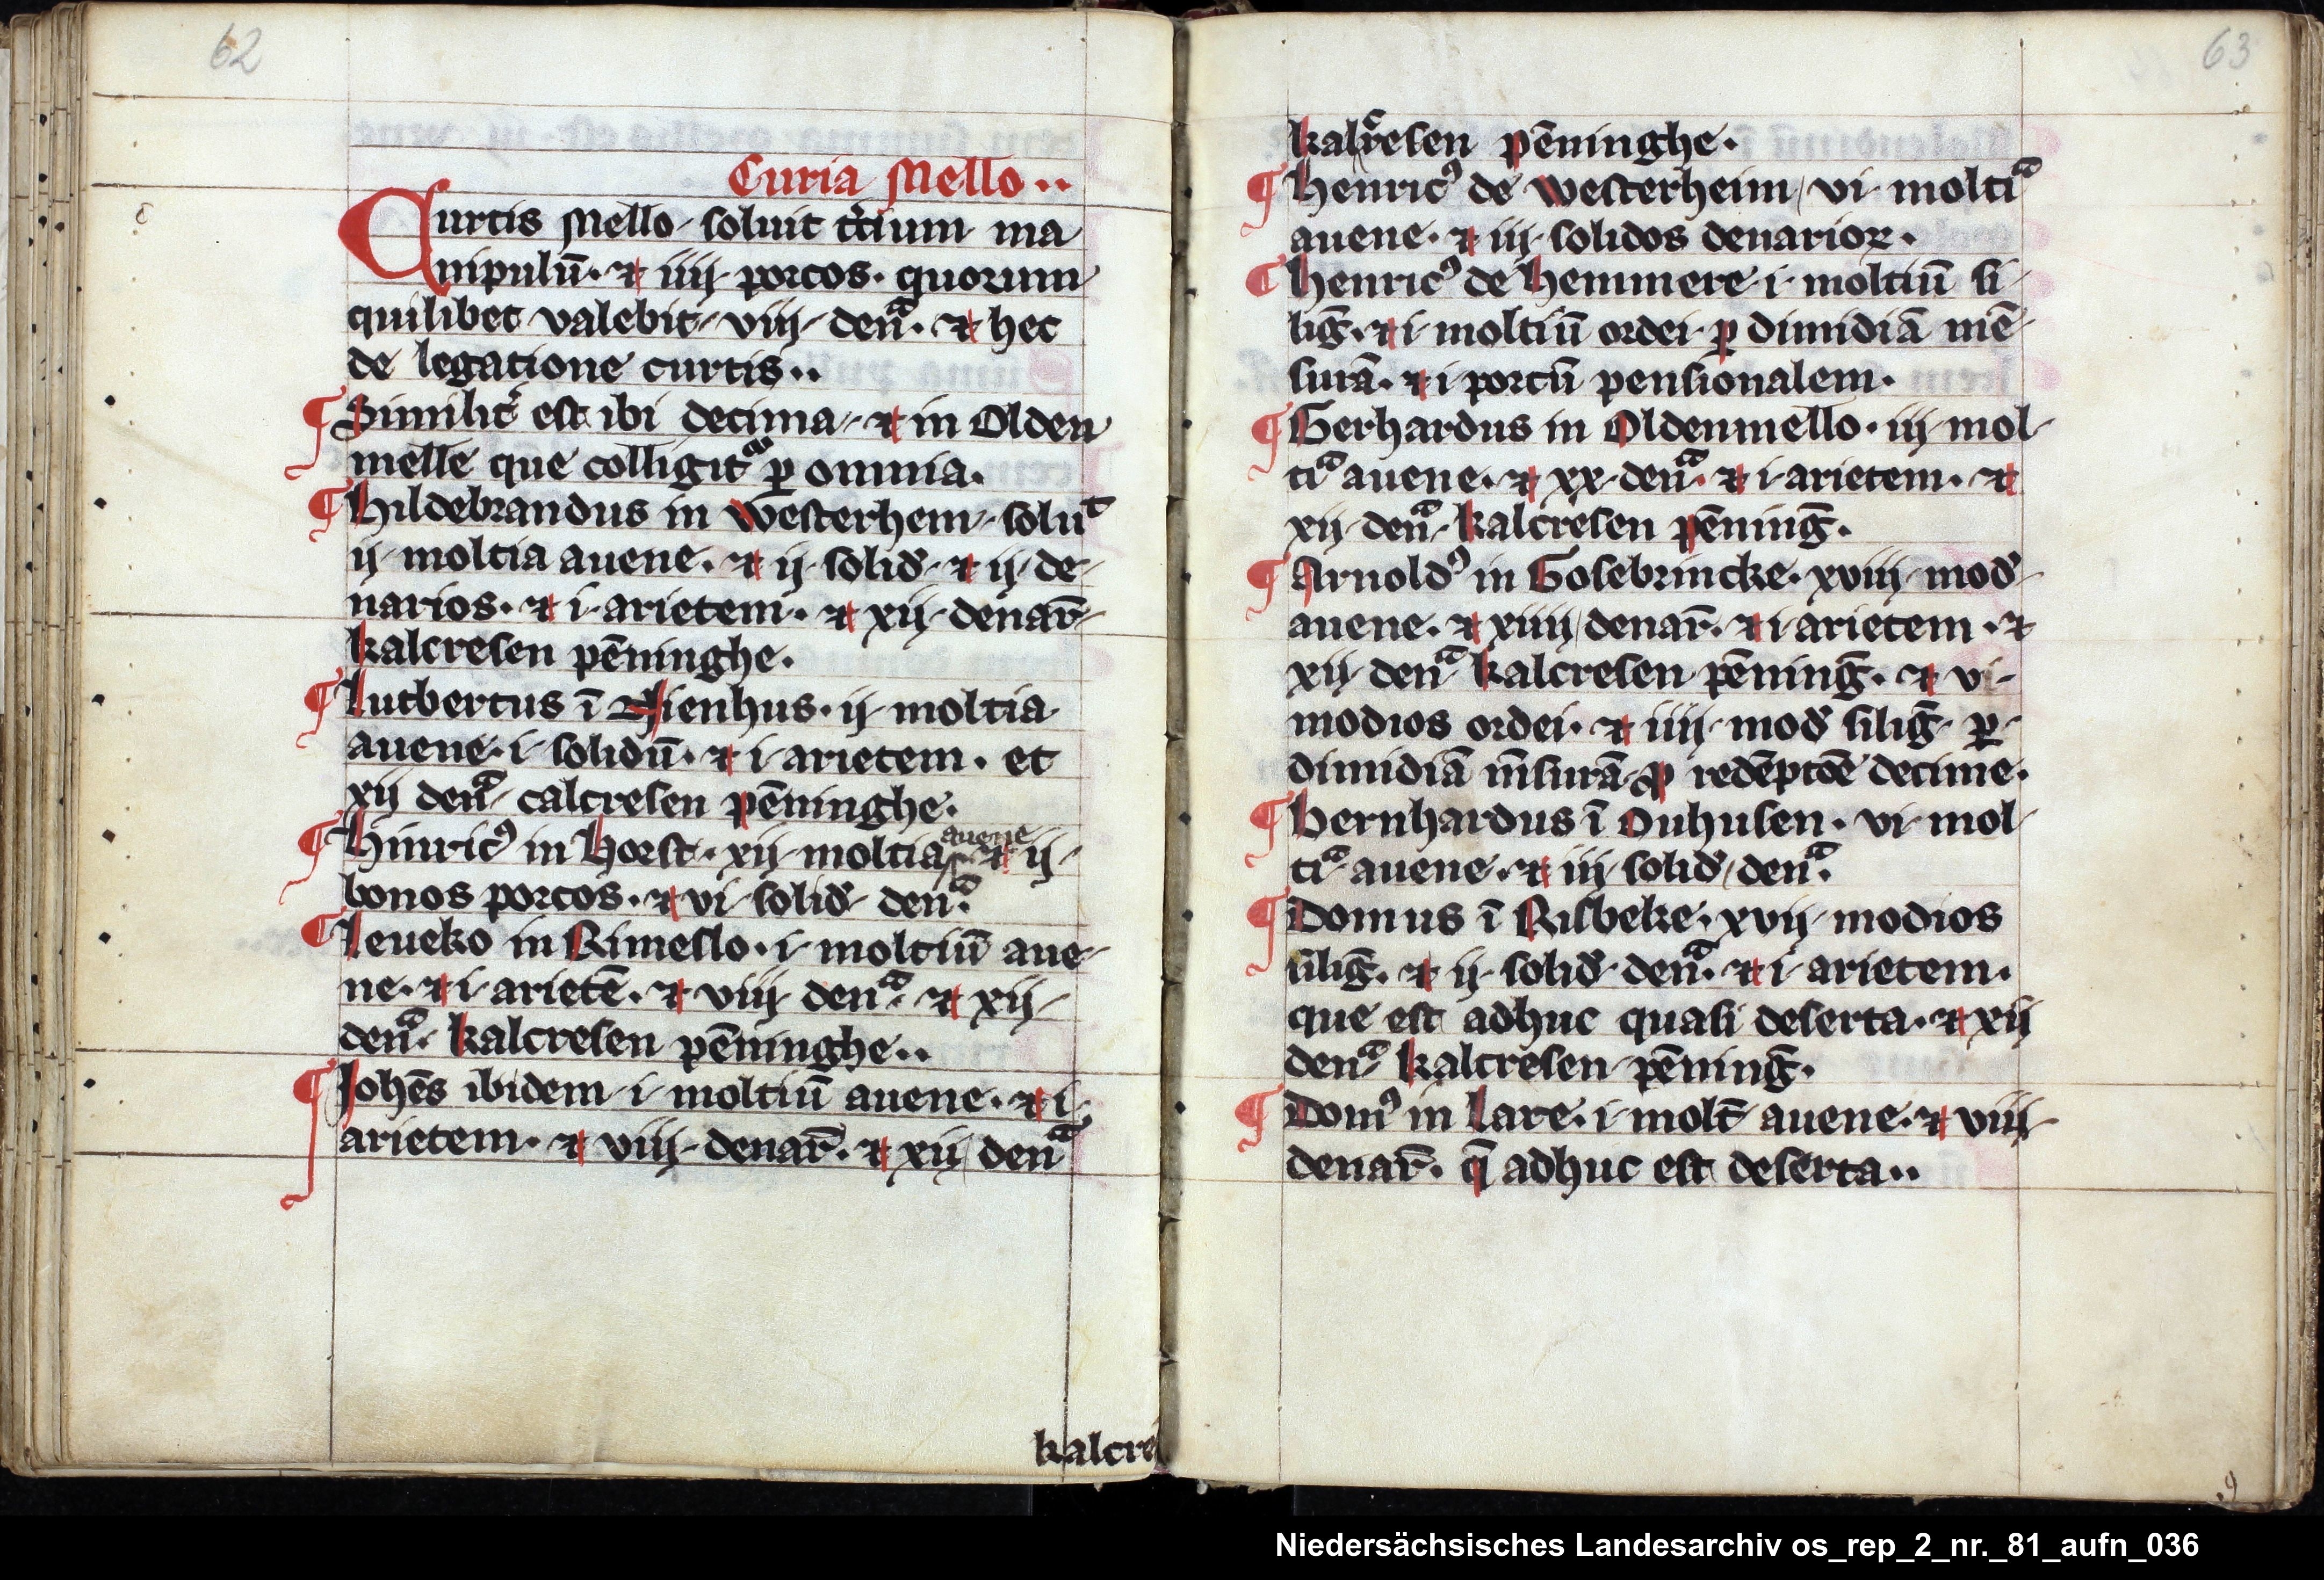 62
Curia Mello..
Curtis Mello soluit t̓cium ma
nipulū. ⁊ iiij porcos. quorum
quilibet valebit viij denᷓ. ⁊ hec
de legatione curtis..
¶ Similit̓ est ibi decima ⁊ in Olden
melle que colligitᷓ ꝑ omnia.
¶ Hildebrandus in Westerhem soluͭ
ij moltia auene. ⁊ ij solid̓ ⁊ ij de-
narios. ⁊ i arietem. ⁊ xij denar̄
kalcresen pēninghe.
¶ Lutbertus ī Nienhus. ij moltia
auene. i solidū. ⁊ i arietem. et
xij denᷓ calcresen pēninghe.
¶ Hinricꝰ in Horst. xij moltia auene ⁊ ij
bonos porcos. ⁊ vi solid̓ denᷓ.
¶ Leueko in Rimeslo. i moltiū aue-
ne. ⁊ i arietē. ⁊ viij denᷓ ⁊ xij
denᷓ. kalcresen pēninghe..
¶ Johēs ibidem i moltiū auene. ⁊ i
arietem. ⁊ viij denar̄. ⁊ xij denᷓ
kalcre
63
kalcresen pēninghe.
¶ Henricꝰ de Westerheim vi moltiᷓ
auene. ⁊ iij solidos denarioꝝ.
¶ Henricꝰ de Hemmere i moltiū si
liḡ. ⁊ i moltiū ordei ꝑ dimidiā mē
surā. ⁊ i porcū pensionalem.
¶ Gerhardus in Oldenmello. iij mol
tiᷓ auene. ⁊ xx denᷓ. ⁊ i arietem. ⁊
xij denᷓ kalcresen pēninḡ.
¶ Arnoldꝰ in Gosebrincke. xviij mod̓
auene. ⁊ xiiij denar̄. ⁊ i arietem. ⁊
xij denᷓ kalcresen pēninḡ. ⁊ vi
modios ordei. ⁊ iiij mod̓ siliḡ ꝑ
dimidiā m̄surā ꝓ redēptōe decime.
¶ Bernhardus ī Ouhusen. vi mol
tiᷓ auene. ⁊ iij solid̓ denᷓ.
¶ Domus ī Risbeke. xvij modios
siliḡ. ⁊ ij solid̓ denᷓ. ⁊ i arietem.
que est adhuc quasi deserta. ⁊ xij
denᷓ kalcresen pēninḡ.
¶ Domꝰ in Lare. i molt̄ auene. ⁊ viij
denar̄. q̄ adhuc est deserta..
Niedersächsisches Landesarchiv os_rep_2_nr._81_aufn_036